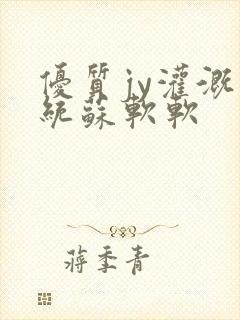 優質jy灌溉
統蘇軟軟
蔣季青